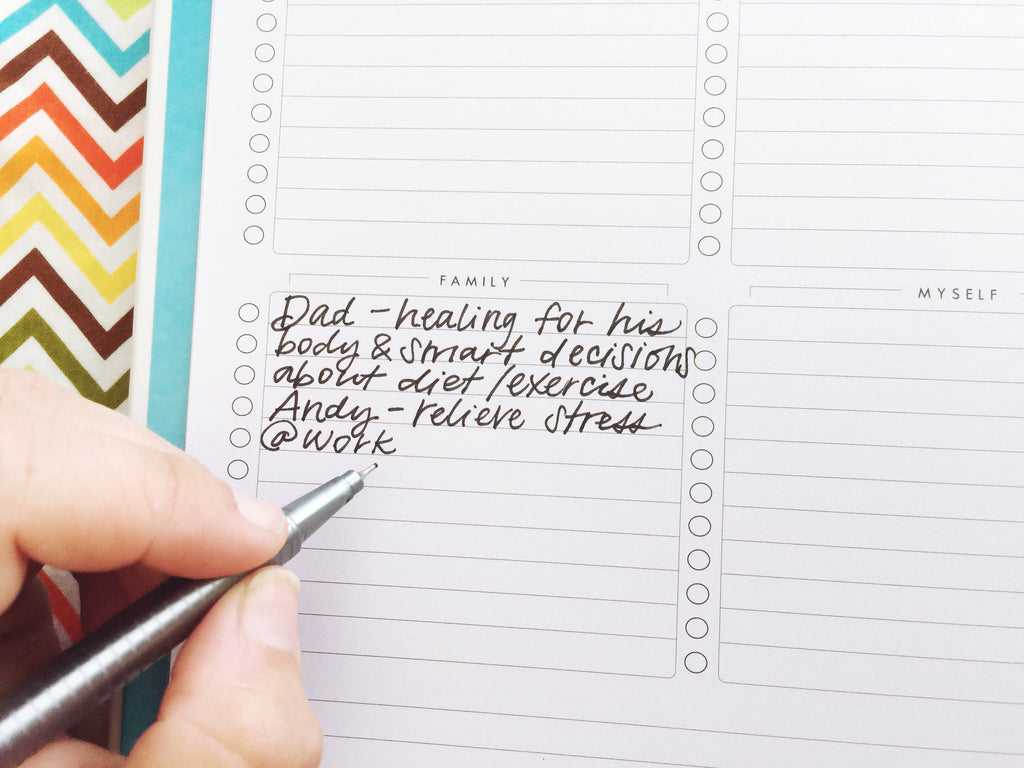 FAMILY
Dad - healing for his
body & smart decisions
about diet/exercise
Andy - relieve stress
@work
MYSELF